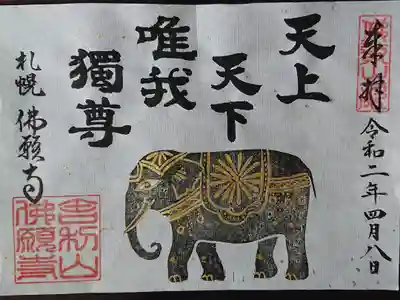 奉拝
令和二年四月八日
天上
天下
唯我
獨尊
札幌 佛願寺
舎利山
佛願寺